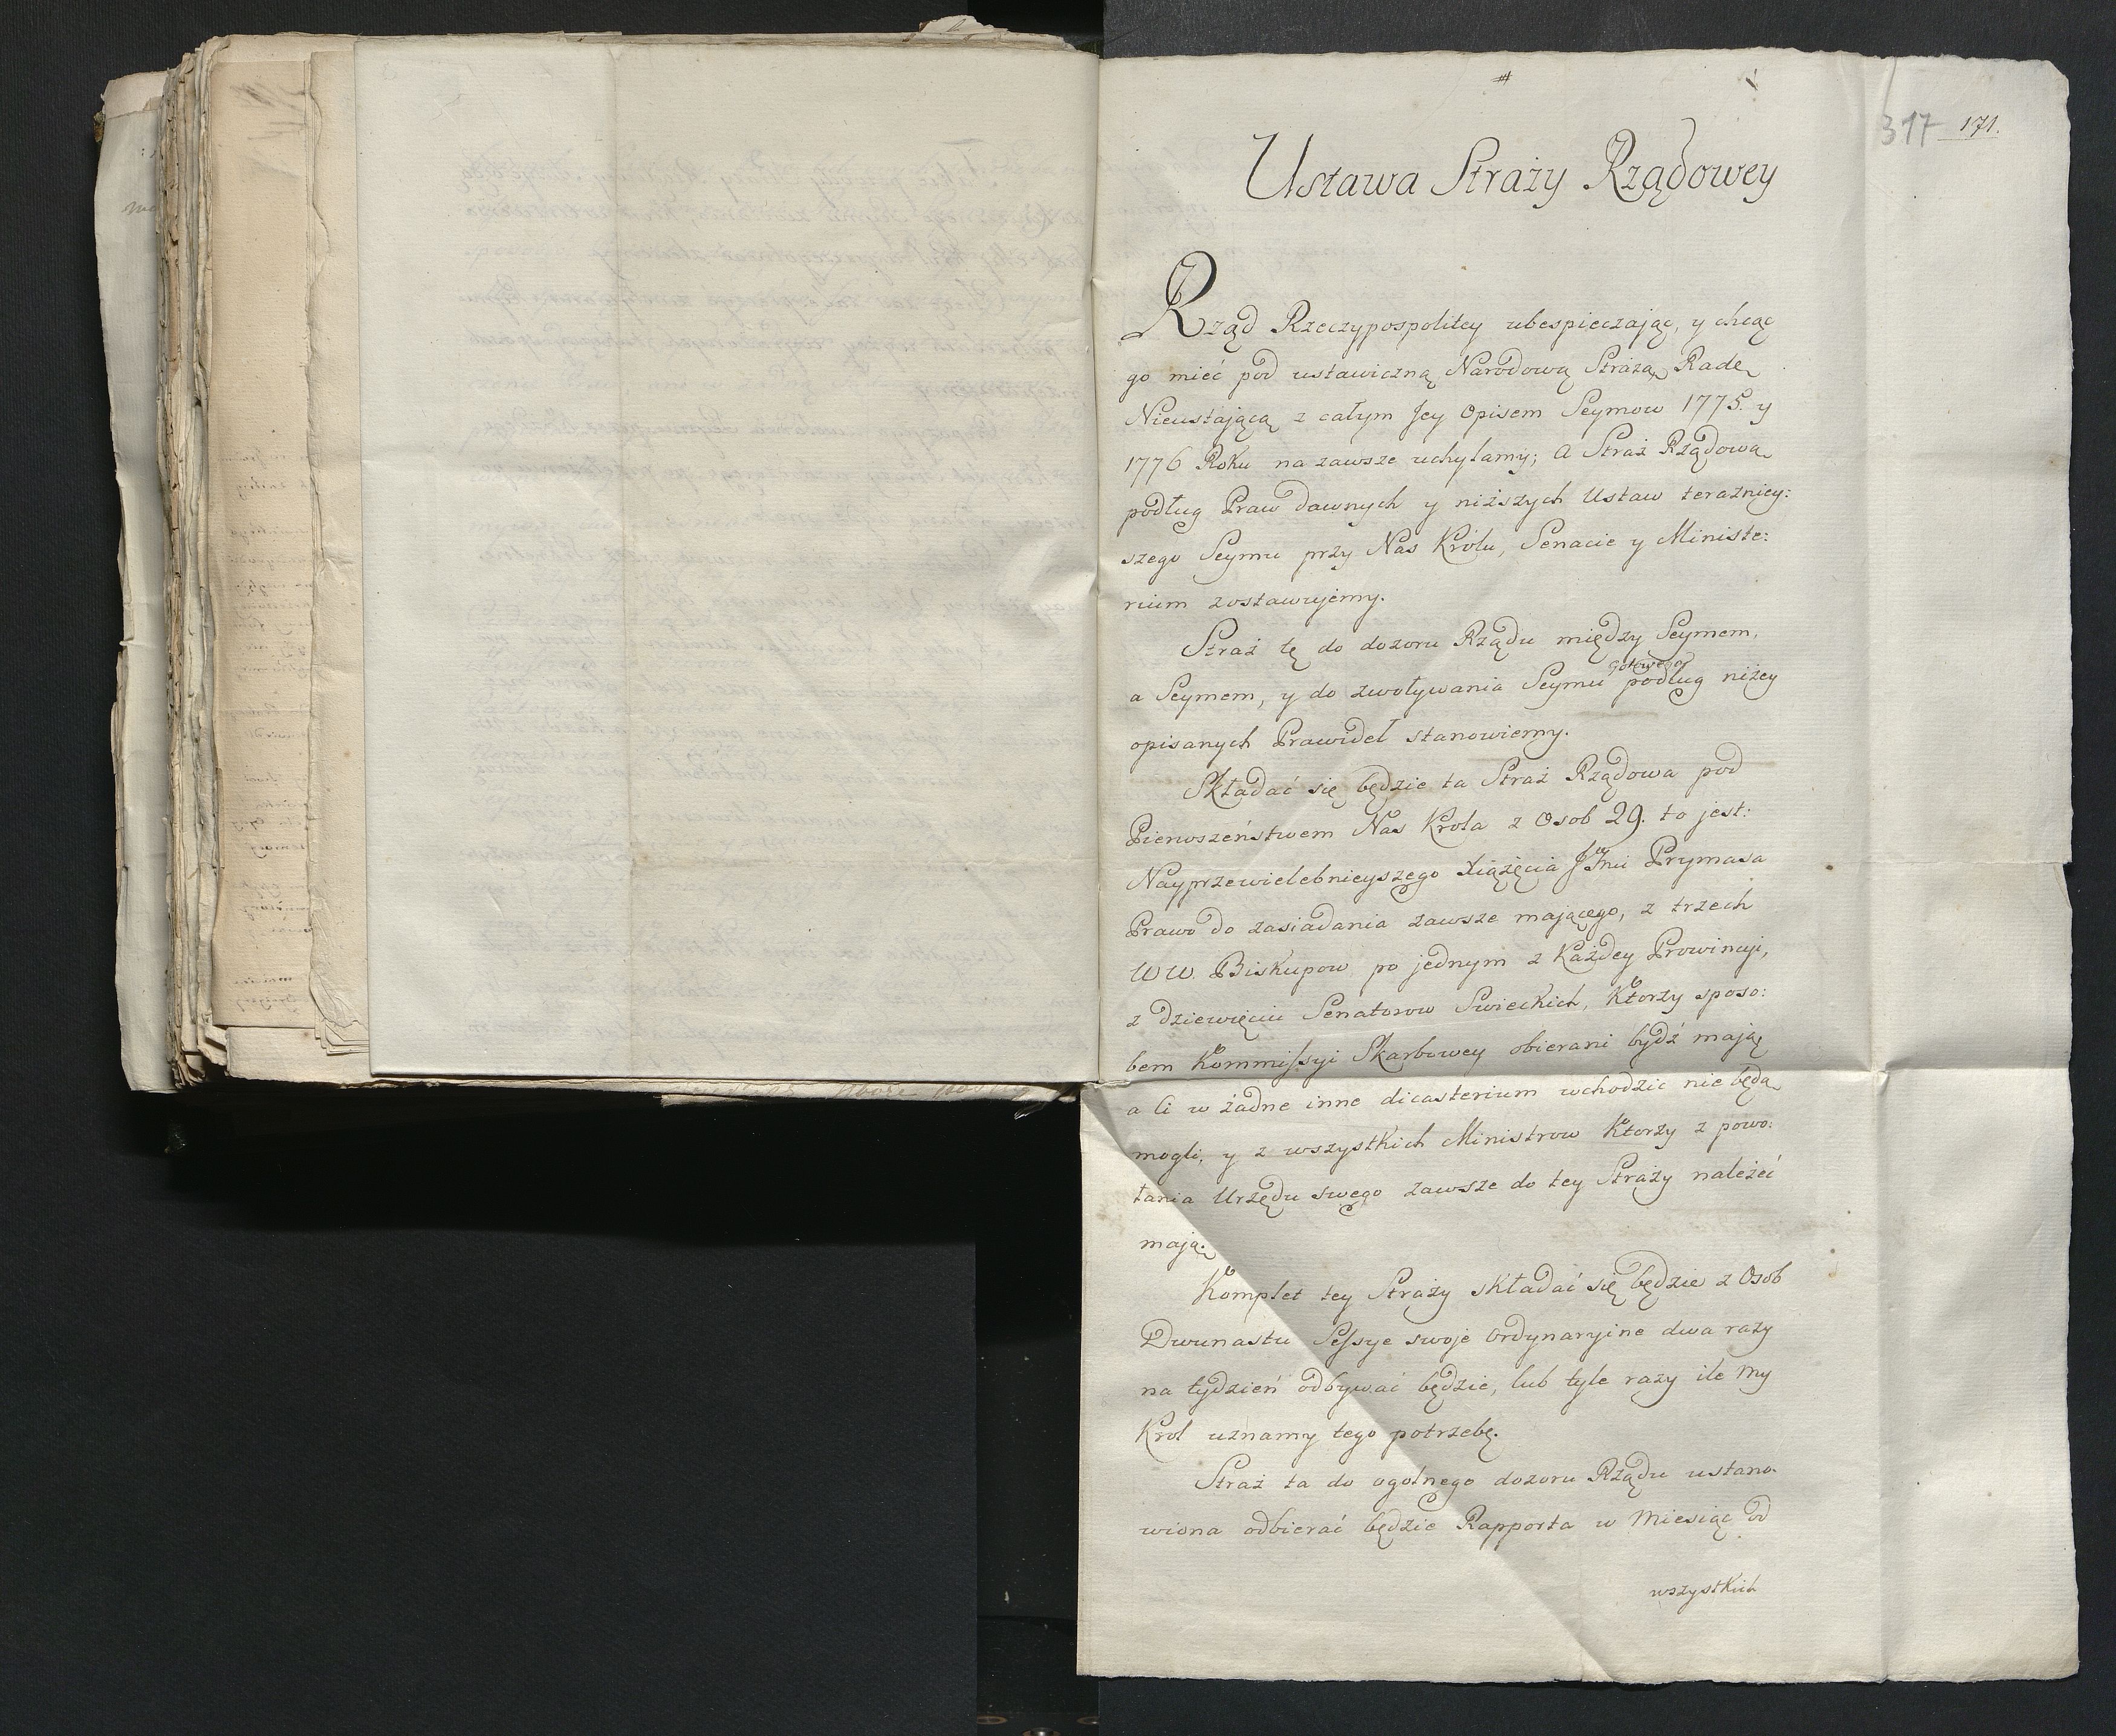 317 171.
Ustawa Straży Rządowey
Rząd Rzeczypospolitey ubespieczając, y chcąc
go mieć pod ustawiczną Narodową Strażą, Radę
Nieustającą z całym Jey Opisem Seymow 1775. y
1776 Roku na zawsze uchylamy; a Straż Rządową
podług Praw dawnych y niższych Ustaw teraźniey:
szego Seymu przy Nas Królu, Senacie y Ministe:
rium zostawujemy.
Straż tę do dozoru Rządu między Seymem,
gotowego
a Seymem, y do zwoływania Seymu podług niżey
opisanych Prawideł stanowiemy.
Składać się będzie ta Straż Rządowa pod
Pierwszeństwem Nas Krola z Osob 29. to jest:
Nayprzewielebnieyszego Xiążęcia Jmci Prymasa
Prawo do zasiadania zawsze mającego, z trzech
WW. Biskupow po jednym z Każdey Prowincyi,
z dziewięciu Senatorow Swieckich, Ktorzy sposo:
bem Kommissyi Skarbowey obierani bydź mają
a ci w żadne inne dicasterium wchodzic nie będą
mogli, y z wszystkich Ministrow Ktorzy z powo:
łania Urzędu swego zawsze do tey Straży należeć
mają.
Komplet tey Straży składać się będzie z Osób
Dwunastu Sessye swoje Ordynaryine dwa razy
na tydzień odbywać będzie, lub tyle razy ile My
Krol uznamy tego potrzebę.
Straż ta do ogolnego dozoru Rządu ustano:
wiona odbierać będzie Rapporta w Miesiąc od
wszystkich